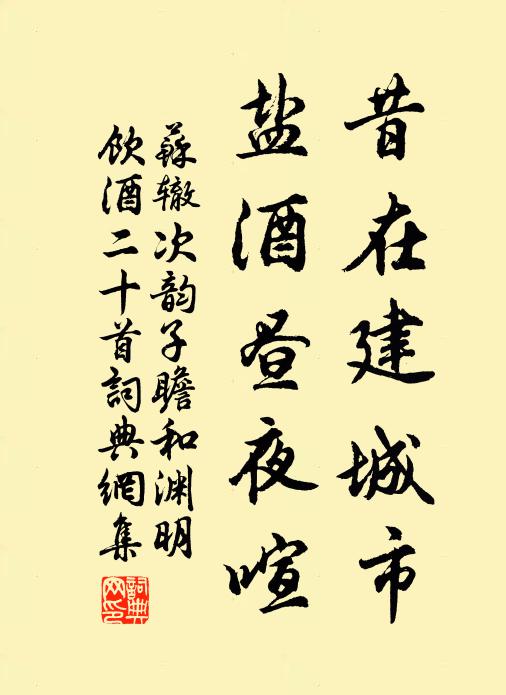 昔在建城市
盐酒昼夜喧
蘇辙次韵子瞻和渊明
飲酒二十首詞典網集
詞典網印